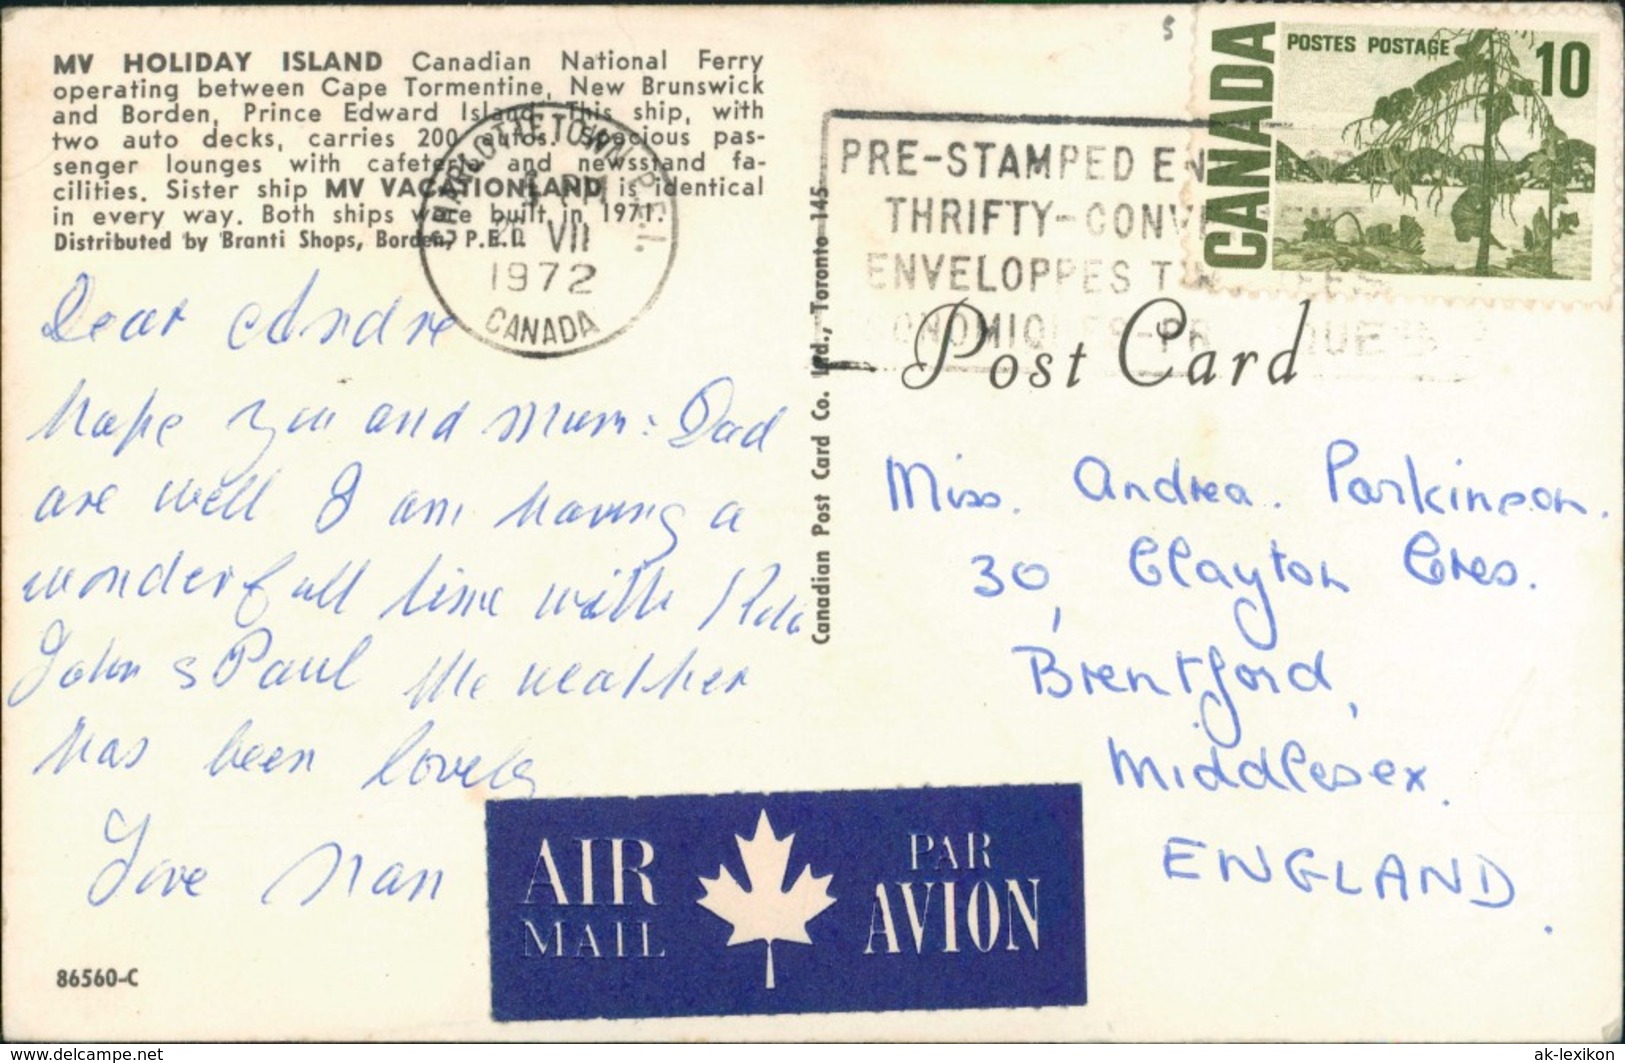 MV HOLIDAY ISLAND Canadian National Ferry
operating between Cape Tormentine, New Brunswick
and Borden, Prince Edward Island. This ship, with
two auto decks, carries 200 autos. Spacious pas-
senger lounges with cafeteria and newsstand fa-
cilities. Sister ship MV VACATIONLAND is identical
in every way. Both ships were built in 1971.
Distributed by Branti Shops, Borden, P.E.I.
CHARLOTTETOWN P.E.I.
PM
VII
1972
CANADA
Dear Andre
hope you and Mum : Dad
are well I am having a
wonderfull time with
John & Paul the weather
has been lovely
Love Nan
86560-C
AIR
MAIL
PAR
AVION
Canadian Post Card Co. Ltd., Toronto 145
5
PRE-STAMPED EN
THRIFTY-CONV
ENVELOPPES T
ONOMIQUES-PR
CANADA
POSTES POSTAGE
10
Post Card
Miss. Andrea. Parkinson.
30, Clayton Cres.
Brentford,
Middlesex.
ENGLAND.
https://www.delcampe.net
ak-lexikon